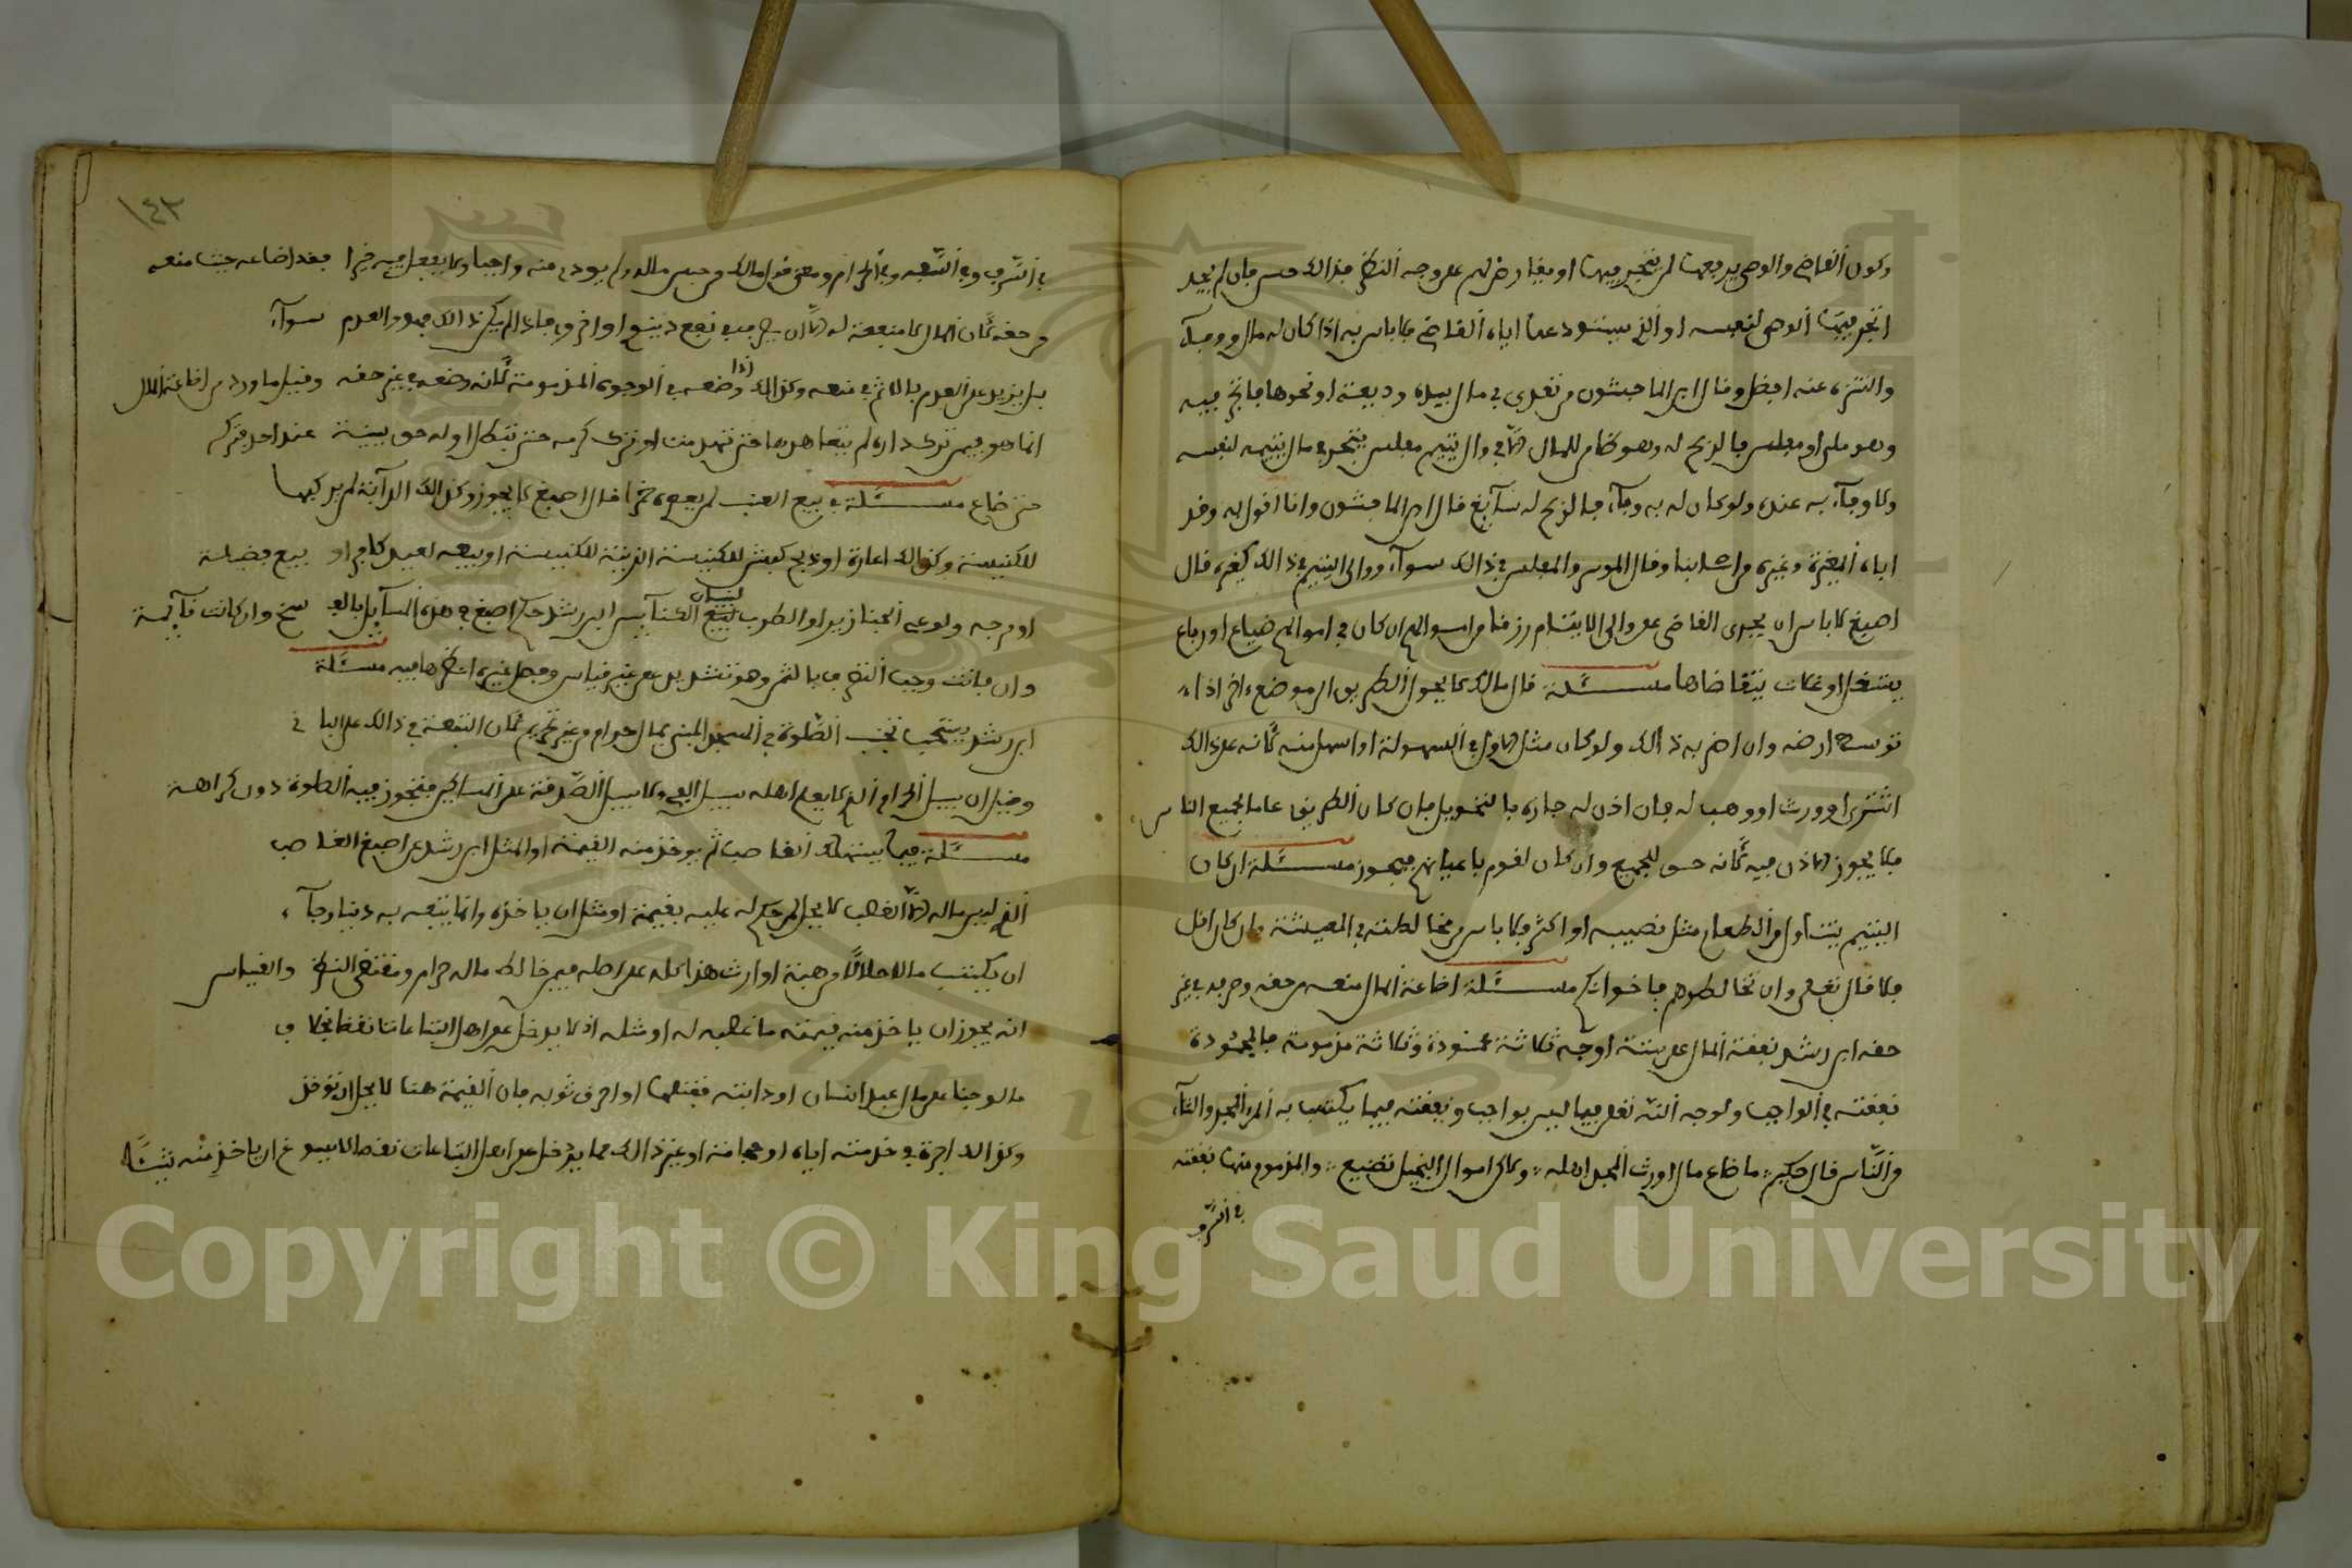 وكون القاضي والوصي يدفعها لمن يتجر فيها او يقارض لهم على وجه النظر فذالك حسن فان لم يجد
اتجر فيها الوصي لنفسه او الذي يستودعها اياه القاضي فلا باس به اذا كان له مال ووفاء
والتنزه عنه افضل وقال ابن الماجشون من تعدى في مال بيده وديعة او نحوها فاتجر فيه
وهو ملي او مفلس فالربح له وهو ضامن للمال الا في والي يتيم مفلس يتجر في مال يتيمه لنفسه
ولا وفاء به عنده ولو كان له به وفاء فالربح له سائغ قال ابن الماجشون وانا اقول به وقد
اباه المغيرة وغيره من اصحابنا وقال الموسر والمفلس في ذالك سواء ووالي اليتيم في ذالك كغيره قال
اصبغ لا باس ان يجري القاضي على والي الايتام رزقا من اموالهم ان كان في اموالهم ضياع او رباع
يشتغل او غلات يتقاضاها مسئلة قال مالك لا يحول الطريق الى موضع اخر اذا
توسط ارضه وان اضر به ذالك ولو كان مثل الاول في السهولة او اسهل منه لانه على ذالك
اشترى او ورث او وهب له فان اذن له جاره بالتحويل فان كان الطريق عاما لجميع الناس
فلا يجوز الاذن فيه لانه حق للجميع وان كان لقوم باعيانهم فيجوز مسئلة ان كان
اليتيم يتناول من الطعام مثل نصيبه او اكثر فلا باس من مخالطته في المعيشة وان كان اقل
فلا قال تعلى وان تخالطوهم فاخوانكم مسئلة اضاعة المال منعه من حقه وصرفه في غير
حقه ابن رشد نفقة المال على ستة اوجه ثلاثة محمودة وثلاثة مذمومة فالمحمودة
نفقته في الواجب ولوجه الله تعلى فيما ليس بواجب ونفقته فيما يكتسب به المرء الحمد والثناء
من الناس قال حكيم ما ضاع مال اورث الحمد اهله ولاكن اموال البخيل تضيع والمذموم منها نفقته
في السرف
١٤٣
في السرف وفي السفه وفي الحرام ومعنى قول مالك من حبس ماله ولم يودي منه واجبا ولا يفعل فيه خيرا فقد اضاعه حيث منعه
من حقه لان المال لا منفعة له الا ان يصرف في نفع ديني او اخروي فاذا لم يكن ذالك فهو والعدم سواء
بل يزيد على العدم بالاثم في منعه وكذالك اذا وضعه في الوجوه المذمومة لانه وضعه في غير حقه وقيل ما ورد من اضاعة المال
انما هو فيمن ترك داره لم يتعاهدها حتى تهدمت او ترك كرمه حتى تبطل او له حق بينة عند احد فتركه
حتى ضاع مسئلة في بيع العنب لمن يعصره خمرا قال اصبغ لا يجوز وكذالك الدابة لمن يركبها
للكنيسة وكذالك اعارة او ذبح كبش للكنيسة الزيتة للكنيسة او بيعه لعبد كافر او بيع فضيلة
او سرجه ولو على الجنازير او الطوب لبنيان لبيع الكنائس ابن رشد حكم اصبغ في هذه المسائل بالفسخ وان كانت قائمة
وان فاتت وجب التصرف بالثمن وهو تشديد على غير قياس وجعل غيره انظرها فيه مسئلة
ابن رشد يستحب تجنب الصلوة في المسجد المبني بمال حرام من غير تحريم لان التبعة في ذالك على الباني
وقيل ان سبيل الحرام الذي لا يعلم اهله سبيل الفيء ولا سبيل الصدقة على المساكين فتجوز فيه الصلوة دون كراهة
مسئلة فيما يستهلك الغاصب ثم يوخذ منه القيمة او المثل ابن رشد عن اصبغ الغاصب
الذي ليس ماله الا الغصب لا يحل لمن حكم له عليه بقيمة او مثل ان ياخذه وانما يتبعه به دينا رجاء
ان يكتسب مالا حلالا من هبة او ارث هذا كله على اصله فيمن خالط ماله حرام ومقتضى النظر والقياس
انه يجوز ان ياخذ منه قيمته ما غصبه له او مثله اذ لا يدخل على اهل التباعات نقصا بخلاف
ما لو جنا على مال عبد انسان او دابته فقتلها او احرق ثوبه فان القيمة هنا لا يحل ان توخذ
وكذالك اجرة في خدمته اياه او حجامة او غير ذالك مما يدخل على اهل التباعات نقصا لا يسوغ ان ياخذ منه شيئا